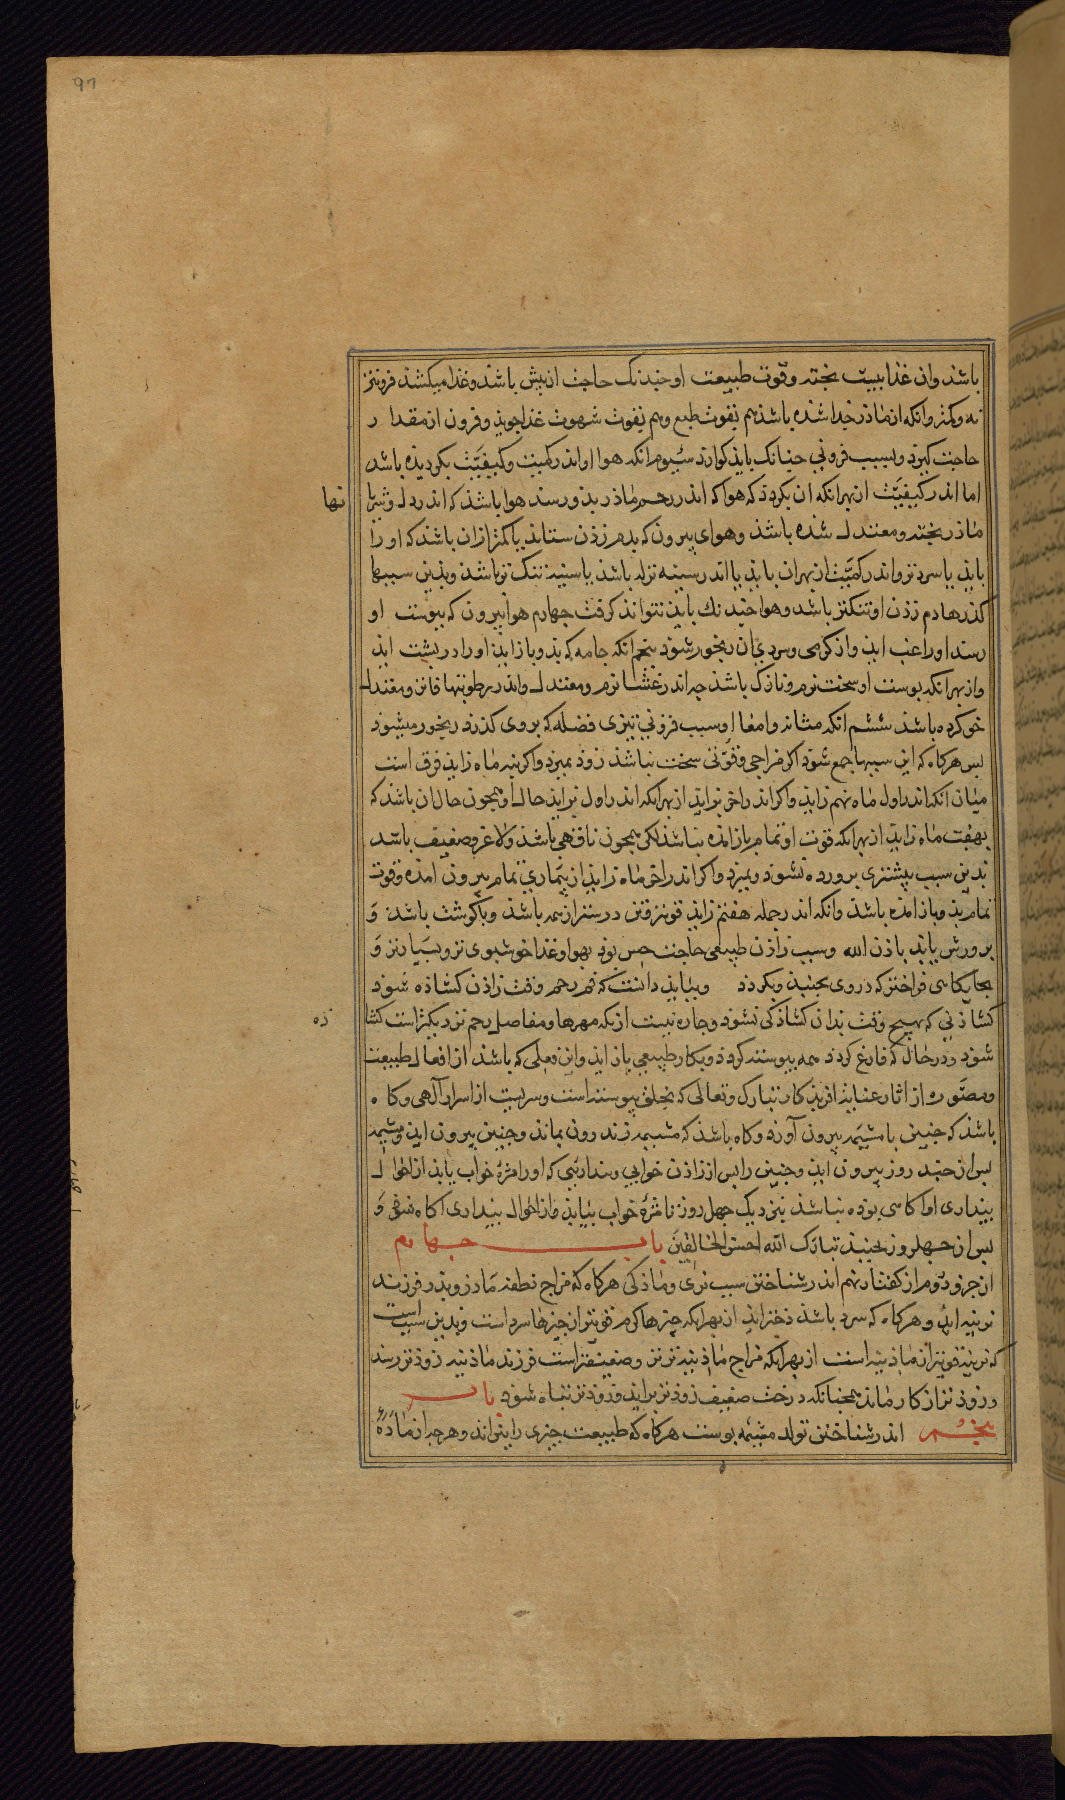 97
باشد وان غذا ببیت بخته وقوت طبیعت او خندنک حاجت ازبیش باشد وغذا میکشد فزونتر
نه وکمتر وانکه از ماذر جدا شده باشد هم بقوت طبع وهم بقوت شهوت غذا جوید وفزون از مقدار
حاجت کیرد وبسبب فزونی جنانک باید کوارد سیوم انکه هوا او اندر کمیت وکیفیت بکردیده باشد
اما اندر کیفیت ازبهر انکه ان بکردد که هوا که اندر رحم ماذر بذو رسد هوا باشد که اندر دل وشریا
نها
ماذر بخته ومعتدل شده باشد وهوای بیرون که بدم زدن ستاند یا کمتر ازان باشد که او را
باید یا سردتر واندر کمیت ازبهران باید یا اندر سینه نزله باشد یا سینه تنک تر باشد وبدین سببها
کذرها دم زدن او تنکتر باشد وهوا جندنک باید نتواند کرفت جهارم هوا بیرون که ببوست او
رسد او را عجب اید واز کرمی وسردی ان رنجور شود بنجم انکه جامه که بذو باز اید او را درشت اید
وازبهر انکه بوست او سخت نرم ونازک باشد جه اندر غشا نرم ومعتدل واندر رطوبتها فاتر ومعتدل
خو کرده باشد ششم انکه مثانه وامعا او سبب فزونی تیزی فضله که بروی کذرد رنجور میشود
بس هرکاه که این سببها جمع شود اکر مزاجی وقوتی سخت نباشد زوذ بمیرد واکر بنه ماه زاید فرق است
میان انکه اندر اول ماه نهم زاید واکر اندر اخر بزاید ازبهر انکه اندر اول بزاید حال او همجون حال ان باشد که
بهفت ماه زاید ازبهر انکه قوت او تمام باز امده نباشد لکن همجون ناقهی باشد ولاغر وضعیف باشد
بدین سبب بیشتری برورده نشود وبمیرد واکر اندر اخر ماه زاید از بیماری تمام بیرون امده وقوت
تمام بذو باز امده باشد وانکه اندر جمله هفتم زاید قویتر وتن درستر ازهمه باشد وباکوشت باشد و
برورش یابد باذن الله وسبب زادن طبیعی حاجت جنین بود بهوا وغذا خوشبوی تر وبسیارتر و
بجایکاهی فراختر که دروی بجنبد وبکردد وبباید دانست که فم رحم وقت زادن کشاده شود
کشادنی که بهیج وقت بدان کشاذکی نشود وجاره نیست ازانکه مهرها ومفاصل رحم نزدیکتر است کشا
ده
شود ودر حال که فارغ کردد همه ببوسته کردد وبکار طبیعی باز اید واین فعلی که باشد از افعال طبیعت
ومصوره از اثار عنایت افریذکار تبارک وتعالی که بخلق ببوسته است وسریست از اسرار آلهی وکاه
باشد که جنین با مشیمه بیرون آورد وکاه باشد که مشیمه زند درون بماند وجنین بیرون اید ومشیمه
بس ازجند روز بیرون اید وجنین را بس از زادن خوابی وبندارشی که او را مزهٔ خواب یابد از احوال
بیداری او اکاهی بوده نباشد بنزدیک جهل روز تا مزهٔ خواب بیابد واز احوال بیداری اکاه نبوذ و
بس از جهل روز بخندد تبارک الله احسن الخالقین باب جهارم
از جزو دوم از کفتار نهم اندر شناختن سبب نری وماذکی هرکاه که مزاج نطفه ماذر وبدر فرزند
نرینه اید وهرکاه که سرد باشد دختر اید ازبهر انکه جیزها کرم قویتر از جیزها سرد است وبدین سبب است
که نرینه قویتر از ماذینه است ازبهر انکه مزاج ماذینه تر تر وضعیفتر است فرزند ماذینه زوذتر رسد
وزوذتر از کار ماند همجنانکه درخت ضعیف زوذتر براید وزوذتر تباه شود باب
بنجم اندر شناختن تولد مشیمه بوست هرکاه که طبیعت جیزی را بتواند وهرجه از مادهٔ